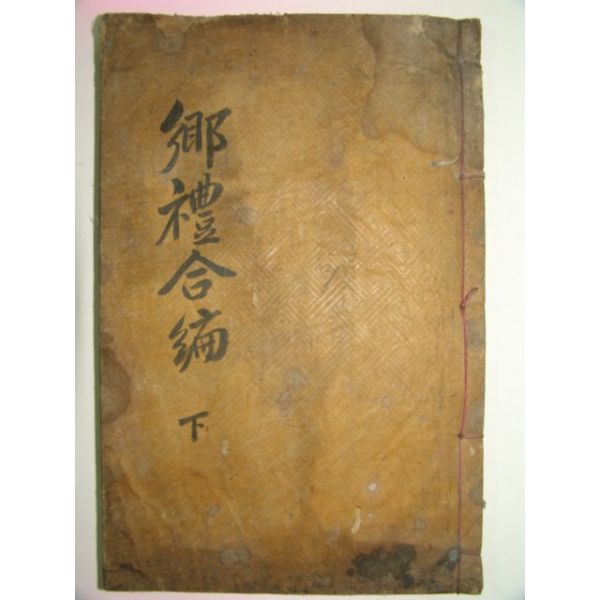 鄉禮合編
下